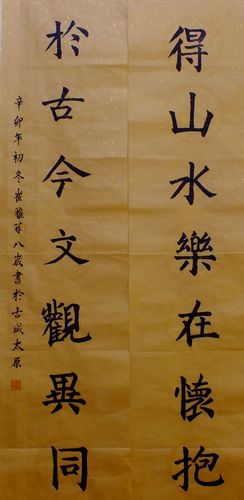 得山水樂在懷抱
於古今文觀異同
辛卯年初冬崔雅菲八歲書於古城太原